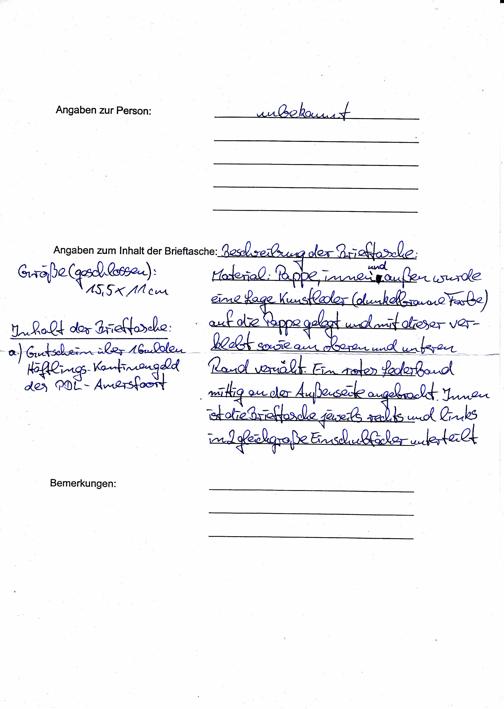 Angaben zur Person: unbekannt
Angaben zum Inhalt der Brieftasche: Beschreibung der Brieftasche:
Größe (geschlossen):
15,5 x 11 cm
Inhalt der Brieftasche:
a) Gutschein über 1 Gulden
Häftlings-Kantinengeld
des PDL - Amersfoort
Material: Pappe, innen und außen wurde
eine Lage Kunstleder (dunkelbraune Farbe)
auf die Pappe gelegt und mit dieser ver-
klebt sowie am oberen und unteren
Rand vernäht. Ein rotes Lederband
mittig an der Außenseite angebracht. Innen
ist die Brieftasche jeweils rechts und links
in 2 gleichgroße Einschubfächer unterteilt
Bemerkungen: